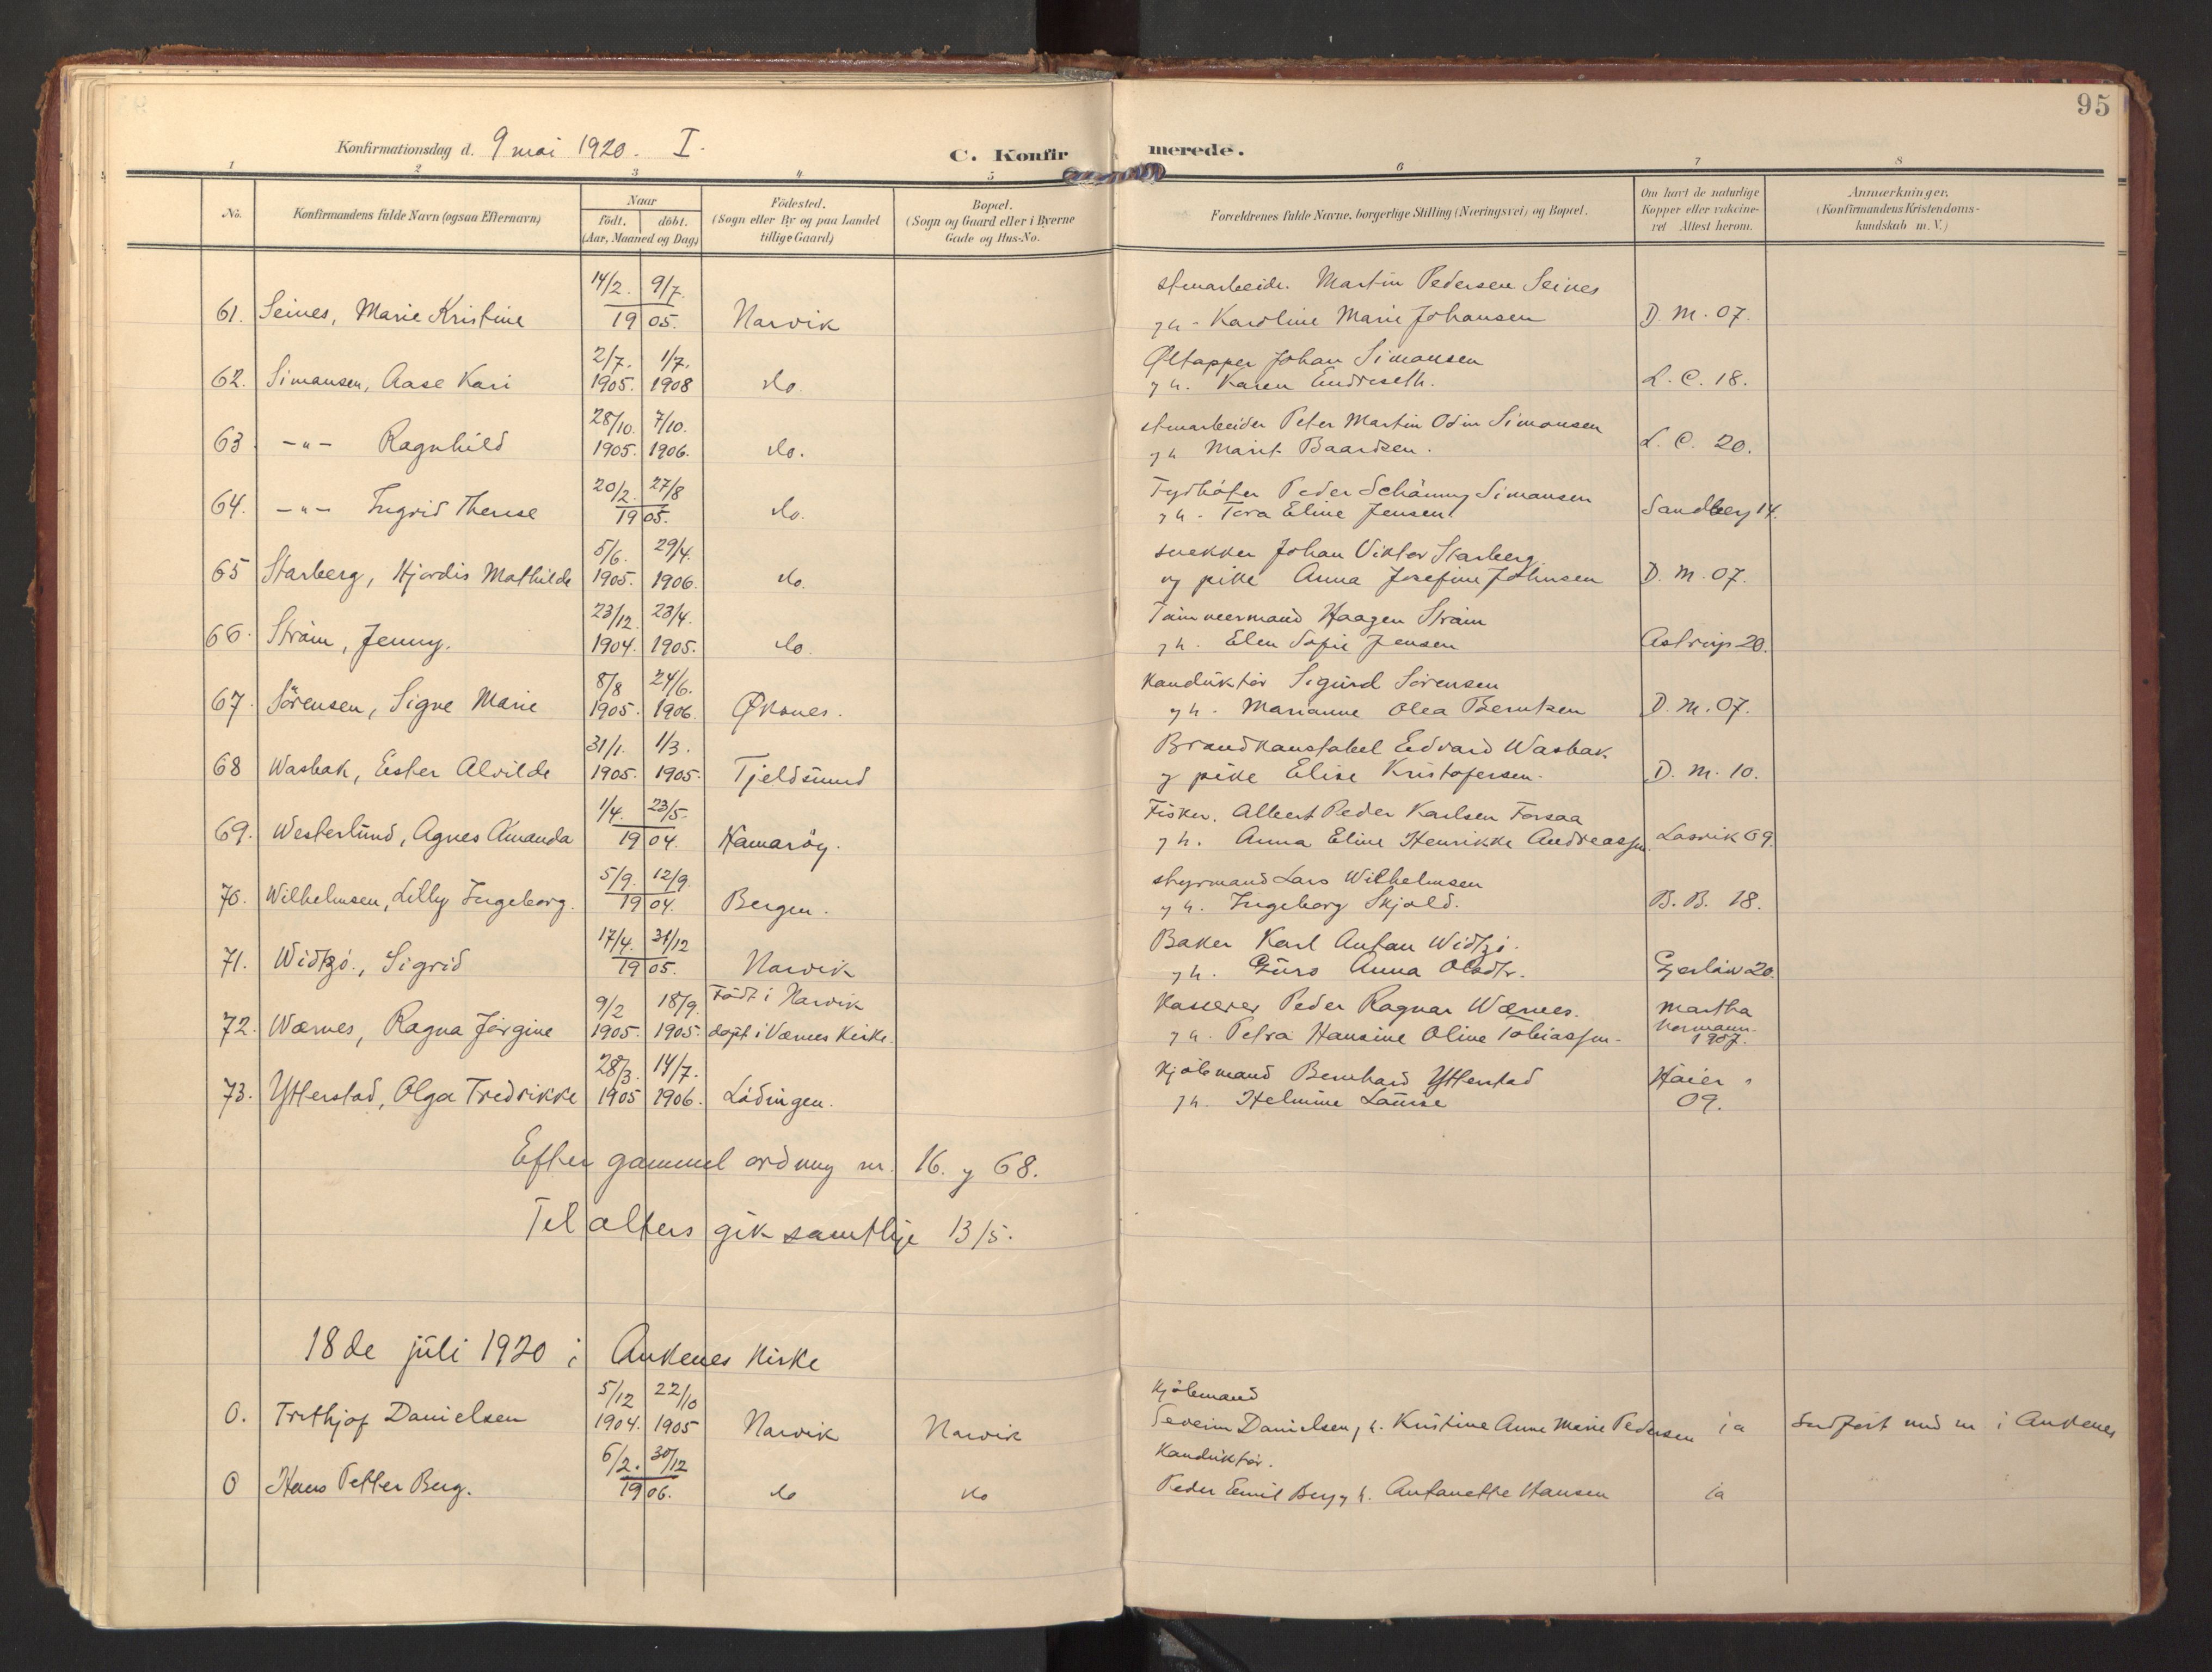 95
Konfirmationsdag d. 9 mai 1920. I.
C. Konfirmerede.
1 2 3 4 5 6 7 8
No.
Konfirmandens fulde Navn (ogsaa Efternavn)
Naar
födt. döbt.
(Aar, Maaned og Dag)
Födested.
(Sogn eller By og paa Landet
tillige Gaard)
Bopæl.
(Sogn og Gaard eller i Byerne
Gade og Hus-No.
Forældrenes fulde Navne, borgerlige Stilling (Næringsvei) og Bopæl.
Om havt de naturlige
Kopper eller vakcine-
ret Attest herom.
Anmærkninger.
(Konfirmandens Kristendoms-
kundskab m. V.)
14/2. 9/7. stenarbeide. Martin Pedersen Seines
61. Seines, Marie Kristine 1905. Narvik g h - Karoline Marie Johansen D. M. 07.
2/7. 1/7. Øltapper Johan Simonsen
62. Simonsen, Aase Kari 1905. 1908 do. g h. Karen Endreseth. L. C. 18.
28/10. 7/10. stenarbeider Peter Martin Odin Simonsen
63. -"- Ragnhild 1905. 1906. do. g h Marit Baardsen. L. C. 20.
20/2. 27/8 Fyrbøter Peder Schäning Simonsen
64. -"- Ingrid Therese 1905. do. g h. Tora Eline Jensen Sandberg 14.
5/6. 29/4. snekker Johan Viktor Starberg
65 Starberg, Hjördis Mathilde 1905. 1906. do. og pike Anna Josefine Johnsen D. M. 07.
23/12. 23/4. Tømmermand Haagen Strøm
66. Strøm, Jenny. 1904. 1905. do. g h. Elen Sofie Jensen Astrup 20.
8/8 24/6. Konduktør Sigurd Sörensen
67. Sörensen, Signe Marie 1905. 1906. Øksnes. g h. Marianne Olea Berntsen D. M. 07.
31/1. 1/3. Brandkonstabel Edvard Wasbak
68 Wasbak, Ester Alvilde 1905. 1905. Tjeldsund g pike Elise Kristofersen. D. M. 10.
1/4. 23/5. Fisker. Albert Peder Karlsen Forsaa
69. Westerlund, Agnes Amanda 1904. Hamarøy. g h. Anna Eline Henrikke Andreassen. Lasvik 09.
5/9. 12/9. styrmand Lars Wilhelmsen
70. Wilhelmsen, Lilly Ingeborg. 1904. Bergen. g h. Ingeborg Skjold. B. B. 18.
17/4. 31/12 Baker Karl Anton Widtzø.
71. Widtzø., Sigrid 1905. Narvik g h. Guro Anna Olsdtr. Gerlöw 20.
9/2 18/9. Födt i Narvik Kasserer Peder Ragnar Wærnes. Martha
72. Wærnes, Ragna Jörgine 1905. 1905. döpt i Værnes Kirke. g h. Petra Hansine Oline Tobiassen. Normann 1907.
28/3. 14/7. Kjöbmand Bernhard Ytterstad Høier
73. Ytterstad, Olga Fredrikke 1905 1906. Lödingen. g h. Helmine Lauise 09.
Efter gammel ordning nr. 16. g 68.
Til alters gik samtlige 13/5.
18de juli 1920 i Ankenes kirke
5/12 22/10 Kjöbmand
0. Frithjof Danielsen 1904. 1905 Narvik Narvik Severin Danielsen, h. Kristine Anne Marie Pedersen ja Indfört med nr i Ankenes
6/2. 30/12 Konduktør.
0 Hans Petter Berg. 1906. do do Peder Emil Berg g h. Antonette Hansen ja